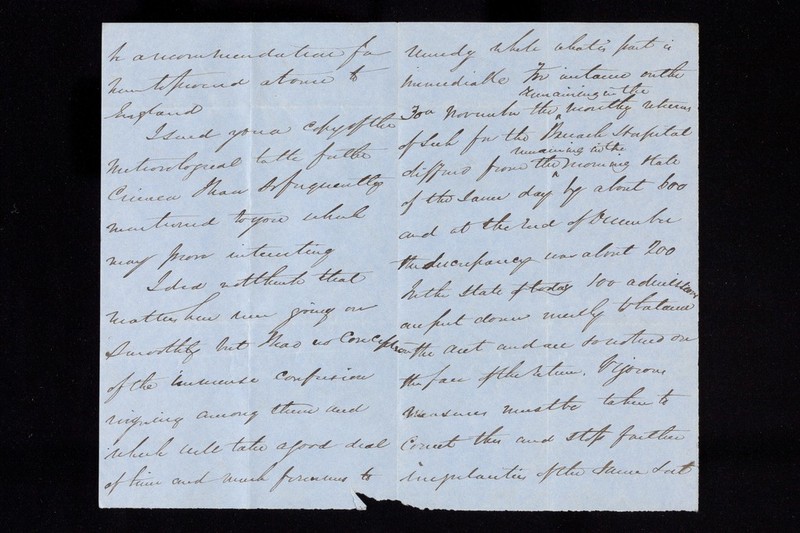 a recommendation for
him to proceed at once to
England
I send you a copy of the
Meteorological table for the
Crimea I have so frequently
mentioned to you which
may prove interesting
I did not think that
matters here were going on
smoothly but I had no conception
of the immense confusion
reigning among them and
which will take a good deal
of time and much firmness to
remedy while what is past is
irremediable For instance on the
30th November the remaining in the monthly returns
of Sick for the Barrack Hospital
differs from the remaining in the morning State
of the same day by about 600
and at the end of December
the discrepancy was about 200
In the State of today 100 admissions
are put down merely to balance
the acct and are so noted on
the face of the return. Vigorous
measures must be taken to
correct this and stop further
irregularities of the same sort